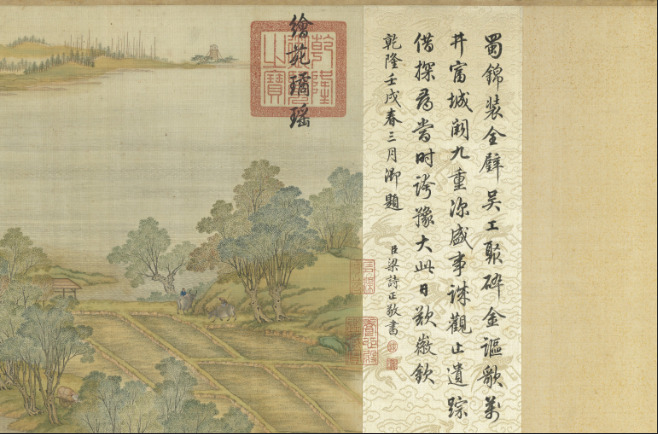 蜀錦裝全璧吳工聚碎金謳歌萬
井富城闕九重深盛事誠觀止遺踪
借探尋當時誇豫大此日歎徽欽
乾隆壬戌春三月御題
臣梁詩正敬書
繪苑璚瑤
乾隆
之寶